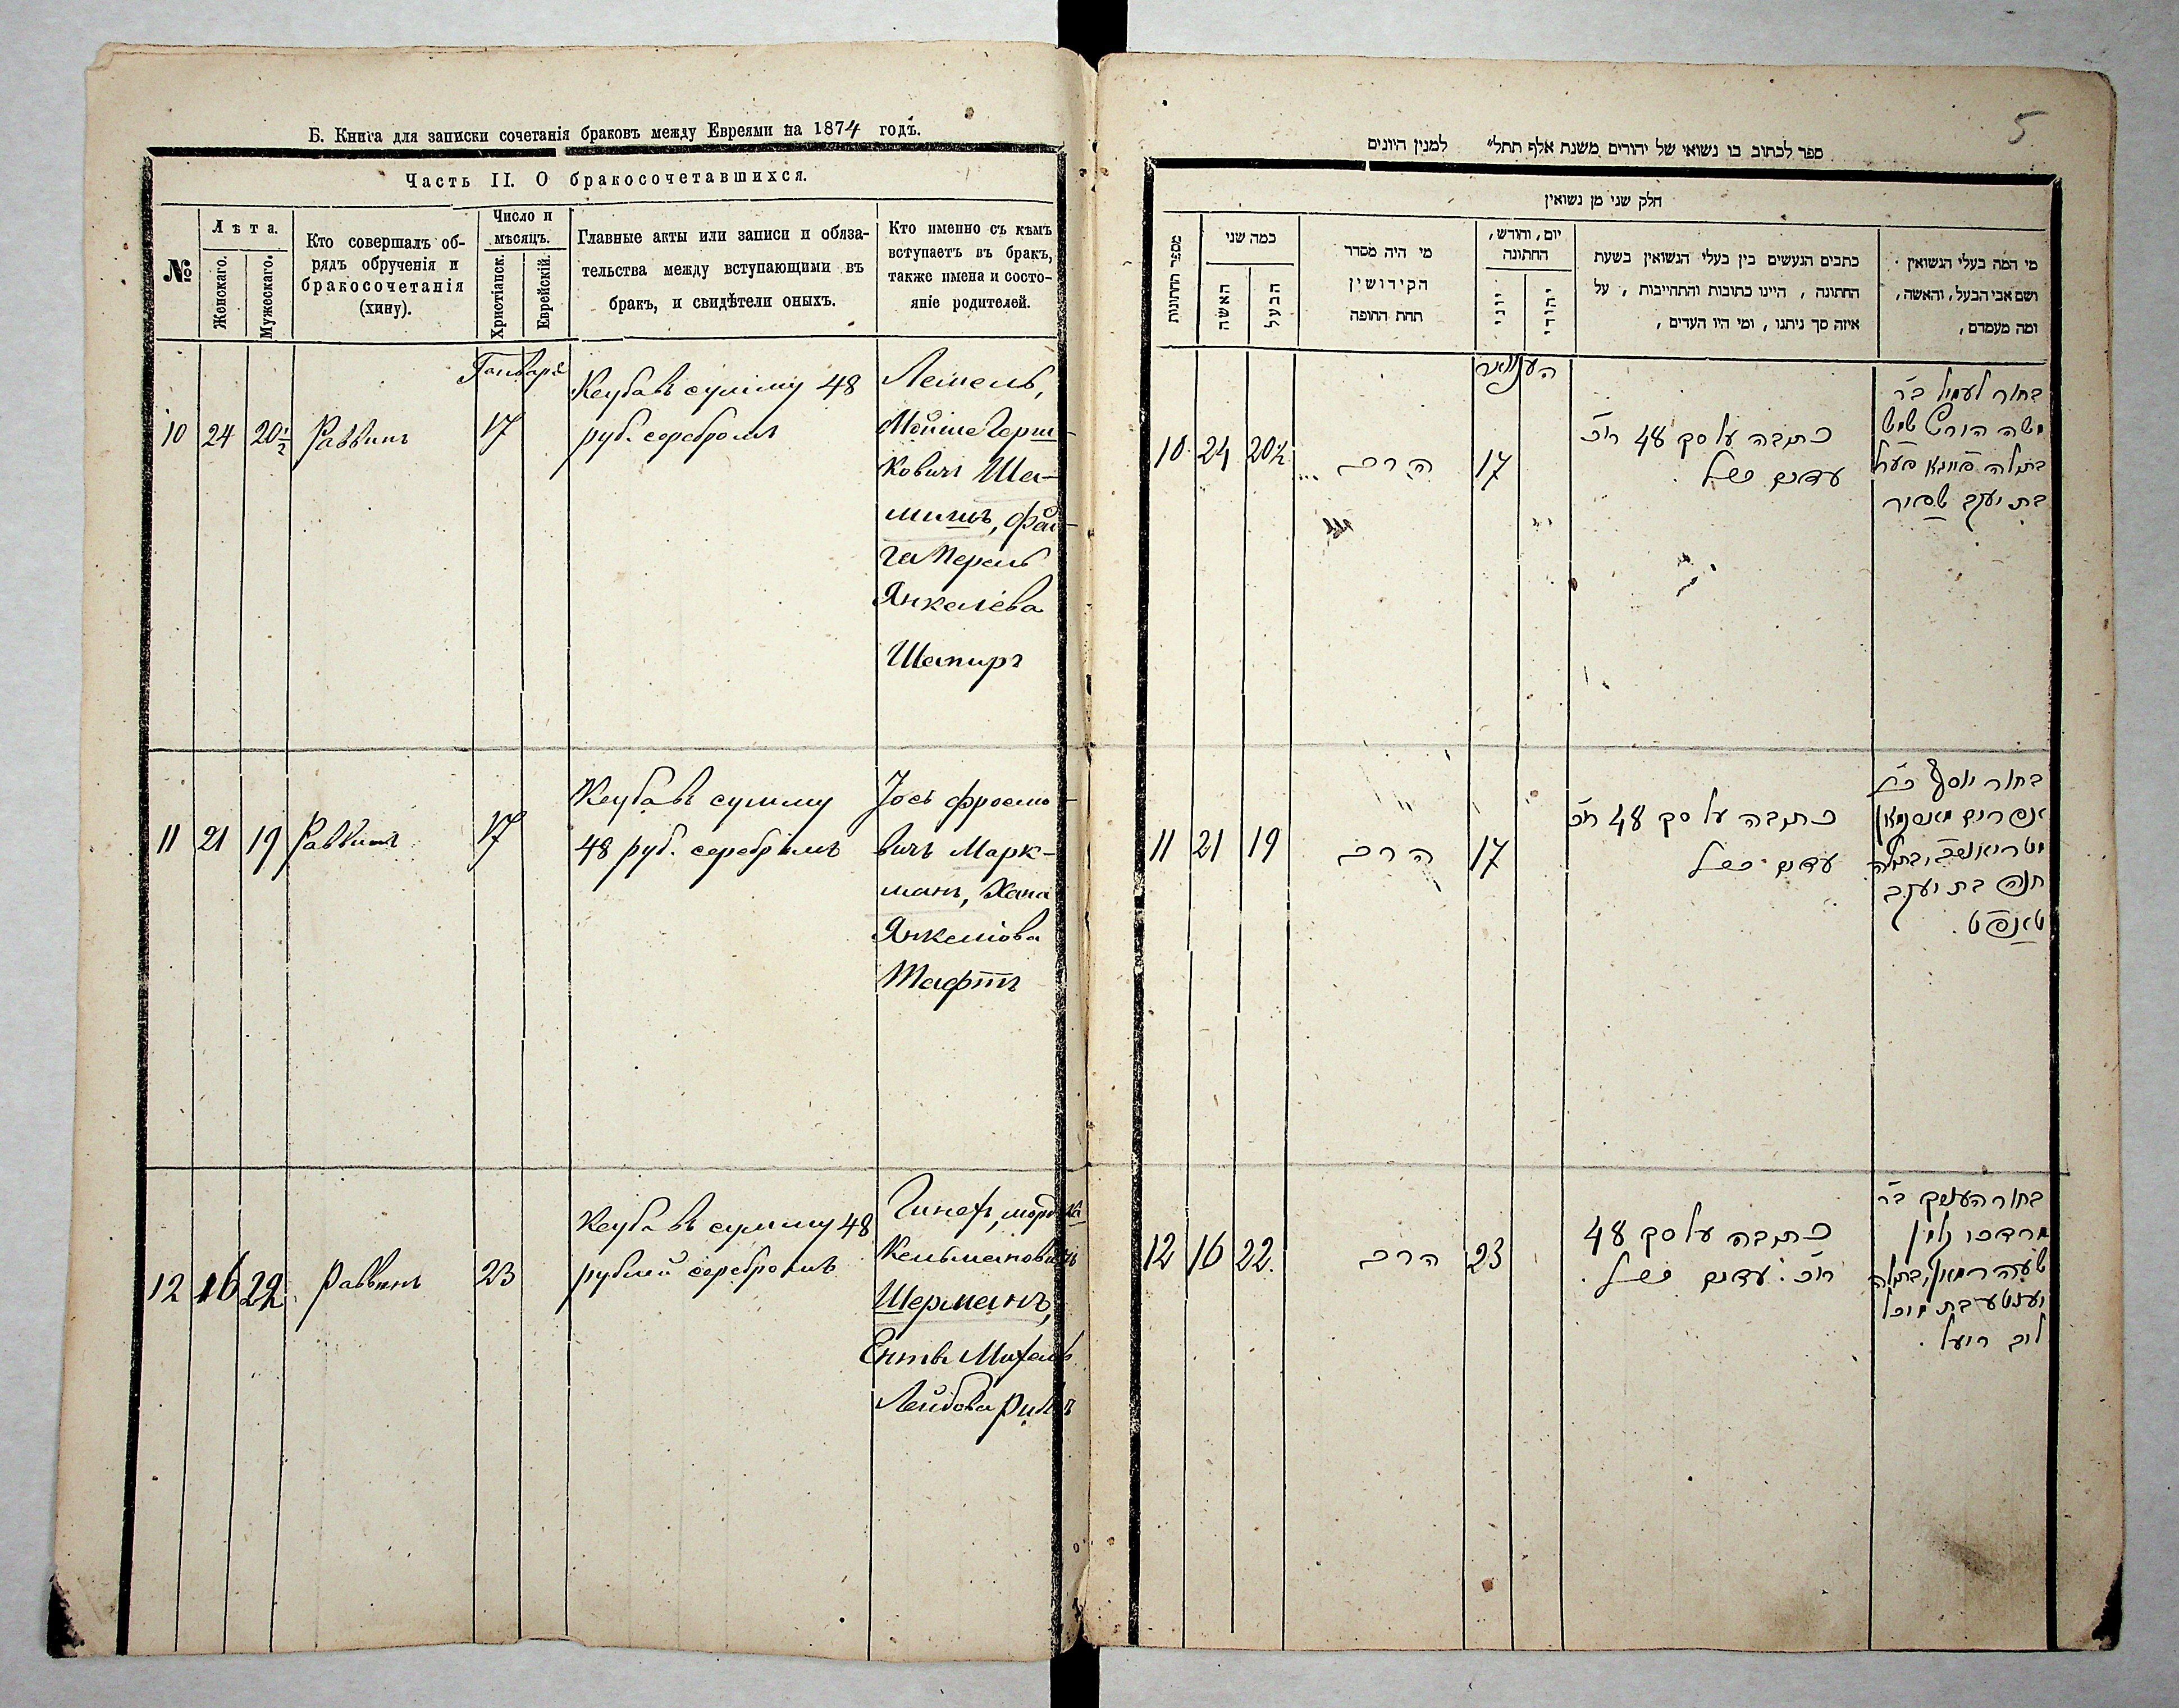 Б. Книга для записки сочетанія браковъ между Евреями на 1874 годъ.
Часть II. О бракосочетавшихся.
№
Лѣта.
Женскаго.
Мужескаго.
Кто совершалъ об-
рядъ обрученія и
бракосочетанія
(хину).
Число и
мѣсяцъ.
Христіанск.
Еврейскій.
Главные акты или записи и обяза-
тельства между вступающими въ
бракъ, и свидѣтели оныхъ.
Кто именно съ кѣмъ
вступаетъ въ бракъ,
также имена и состо-
яніе родителей.
Генваря
10 24 20½ Раввинъ 17
Кетуба въ сумму 48
руб. серебромъ
Лемель,
Мойше Герш-
ковичъ Ша-
мишъ, Фай-
га Перель
Янкелева
Шапиръ
11 21 19 Раввинъ 17
Кетуба въ сумму
48 руб. серебромъ
Іось Фроимо-
вичъ Марк-
манъ, Хана
Янкелiова
Тафтъ
12 16 22 Раввинъ 23
Кетуба въ сумму 48
рублей серебромъ
Мордка
Кельмановичъ
Шерманъ,
Ента Михель
Лейбова
5
ספר לכתוב בו נשואי של יהודים משנת אלף תתל״ למנין היונים
חלק שני מן נשואין
מספר החתונות
כמה שני
האשה
הבעל
מי היה מסדר
הקידושין
תחת החופה
יום, וחודש,
החתונה
יוני
יהודי
כתבים הנעשים בין בעלי הנשואין בשעת
החתונה, היינו כתובות והתחייבות, על
איזה סך ניתנו, ומי היו העדים,
מי המה בעלי הנשואין
ושם אבי הבעל, והאשה,
ומה מעמדם,
10 24 20½ הרב 17
כתובה על סך 48 רוכ
עדים כנ״ל
בחור לעמיל בר
משה הירש
בתולה פייגא פערל
בת יעקב שפיר
11 21 19 הרב 17
כתובה על סך 48 רוכ
עדים כנ״ל
בחור יוסף בר
אפרים מארקמאן
ובתולה
חנה בת יעקב
טאפט.
12 16 22 הרב 23
כתובה על סך 48
רוכ. עדים כנ״ל.
בחור העניך בר
מרדכי
שערמאן, ובתולה
יענטע בת מיכל
ליב